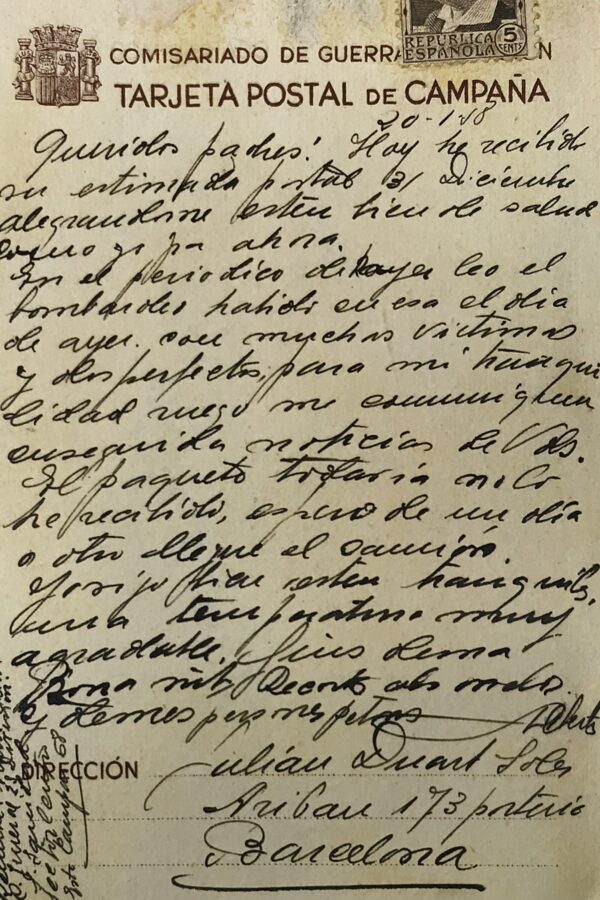 REPUBLICA
ESPAÑOLA
5
CENTS
COMISARIADO DE GUERRA
TARJETA POSTAL DE CAMPAÑA
20-1-38
Queridos padres! Hoy he recibido
su estimada postal 31 Diciembre
alegrandome esten bien de salud
como yo pa ahora.
En el periodico de ayer leo el
bombardeo habido en esa el dia
de ayer. con muchas victimas
y desperfectos, para mi tranqui
lidad ruego me comuniquen
enseguida noticias de Vds.
El paquete todavia no lo
he recibido, espero de un dia
o otro llegue el camión.
Yo sigo bien esten tranquilos,
una temperatura muy
agradable. Fins dema
Bona nit. Records als
y demes
DIRECCIÓN
Julián Duart Soler
Aribau 173 porteria
Barcelona